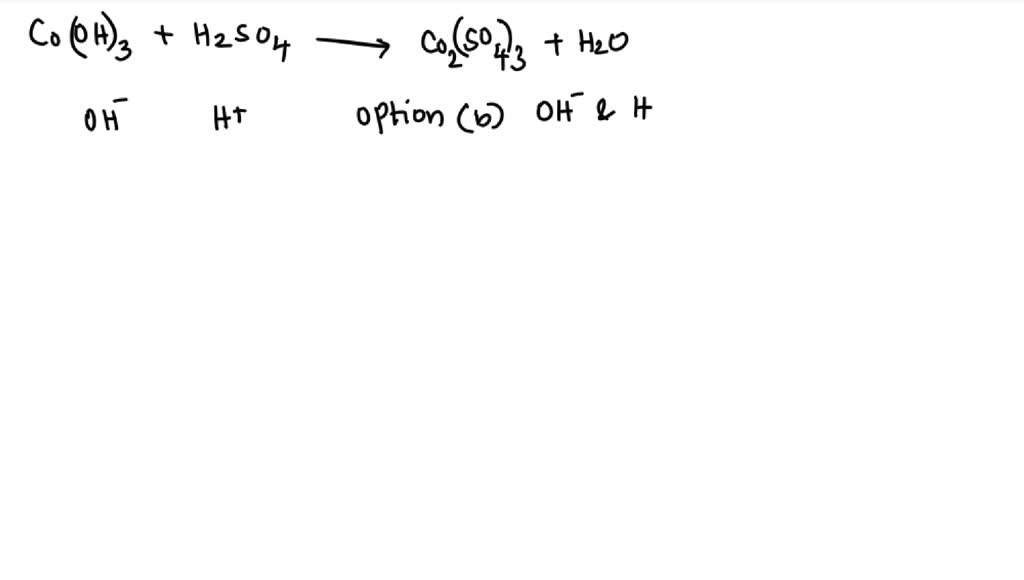 Co(OH)3 + H2SO4 ⟶ Co2(SO4)3 + H2O
OH⁻ H+ option (b) OH⁻ & H